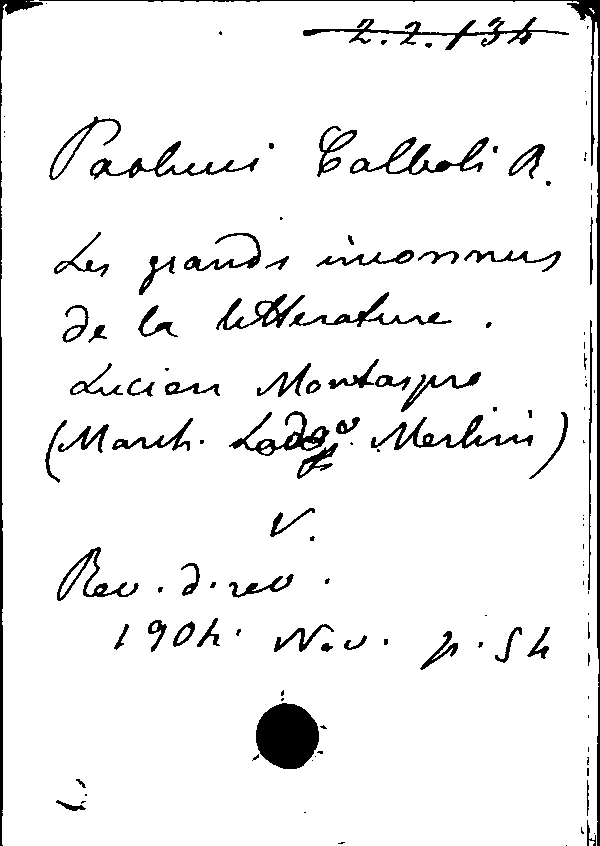 2.2.134
Paolucci Calboli R.
Les grands inconnus
de la litterature.
Lucien Montaspre
(March. Lodgo. Merlini)
V.
Rev. d. rev.
1904. Nov. p. 54